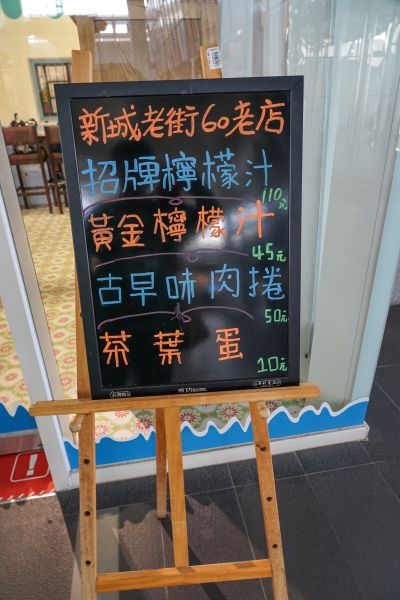 新城老街60老店
招牌檸檬汁
110元
黃金檸檬汁
45元
古早味肉捲
50元
茶葉蛋
10元